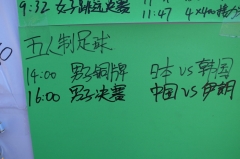 9:32 女子跳远决赛
11:47 4×400接力
五人制足球
14:00 男子铜牌 日本 VS 韩国
16:00 男子决赛 中国 VS 伊朗